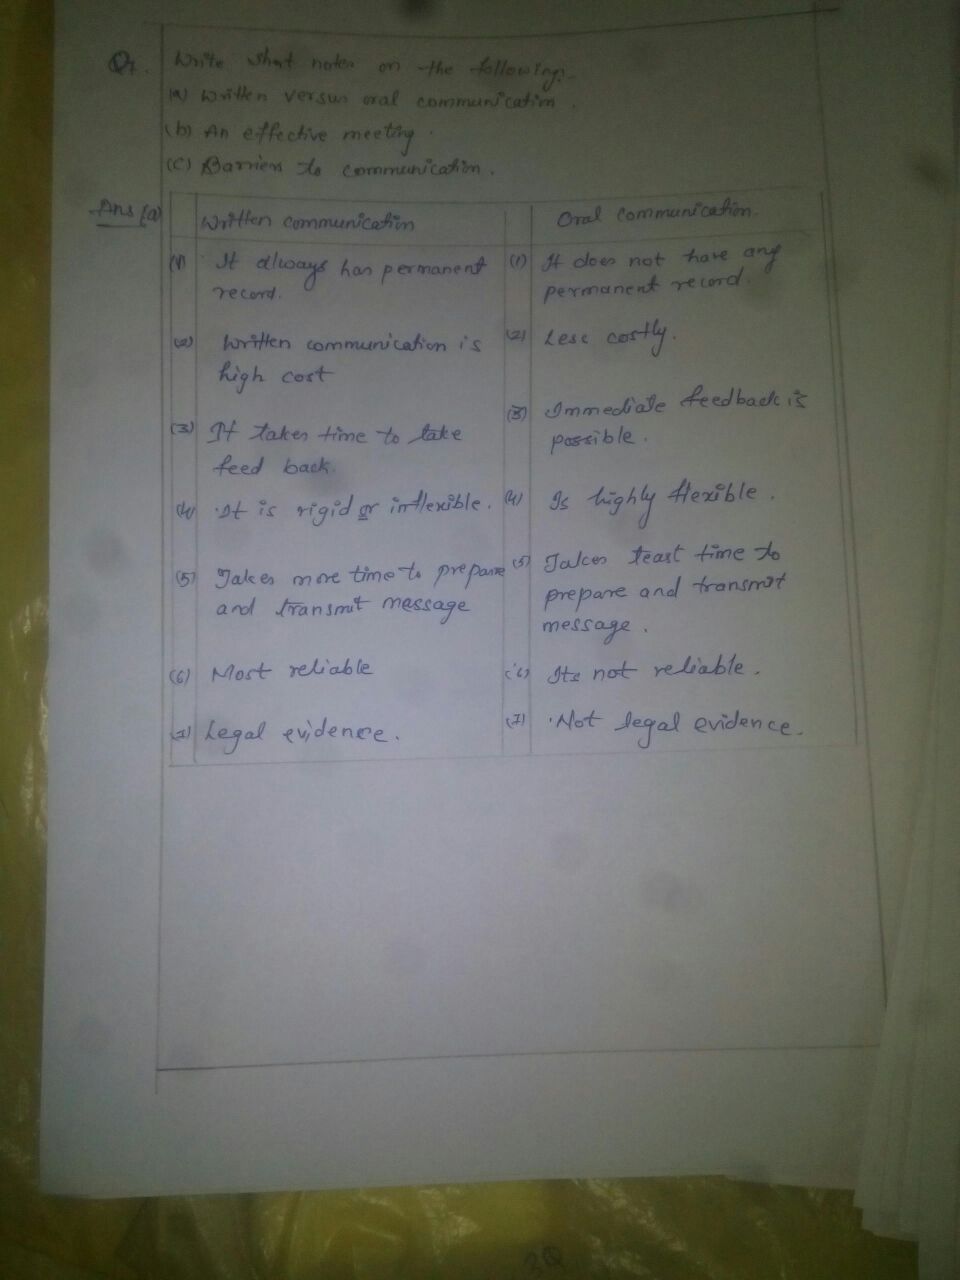 Q7. Write short notes on the following:
(a) Written versus oral communication.
(b) An effective meeting.
(c) Barriers to communication.
Ans (a)
Written communication
Oral communication.
(1) It always has permanent
record.
(1) It does not have any
permanent record.
(2) Written communication is
high cost
(2) Less costly.
(3) It takes time to take
feed back.
(3) Immediate feedback is
possible.
(4) It is rigid or inflexible.
(4) Is highly flexible.
(5) Takes more time to prepare
and transmit message
(5) Takes least time to
prepare and transmit
message.
(6) Most reliable
(6) Its not reliable.
(7) Legal evidence.
(7) Not legal evidence.